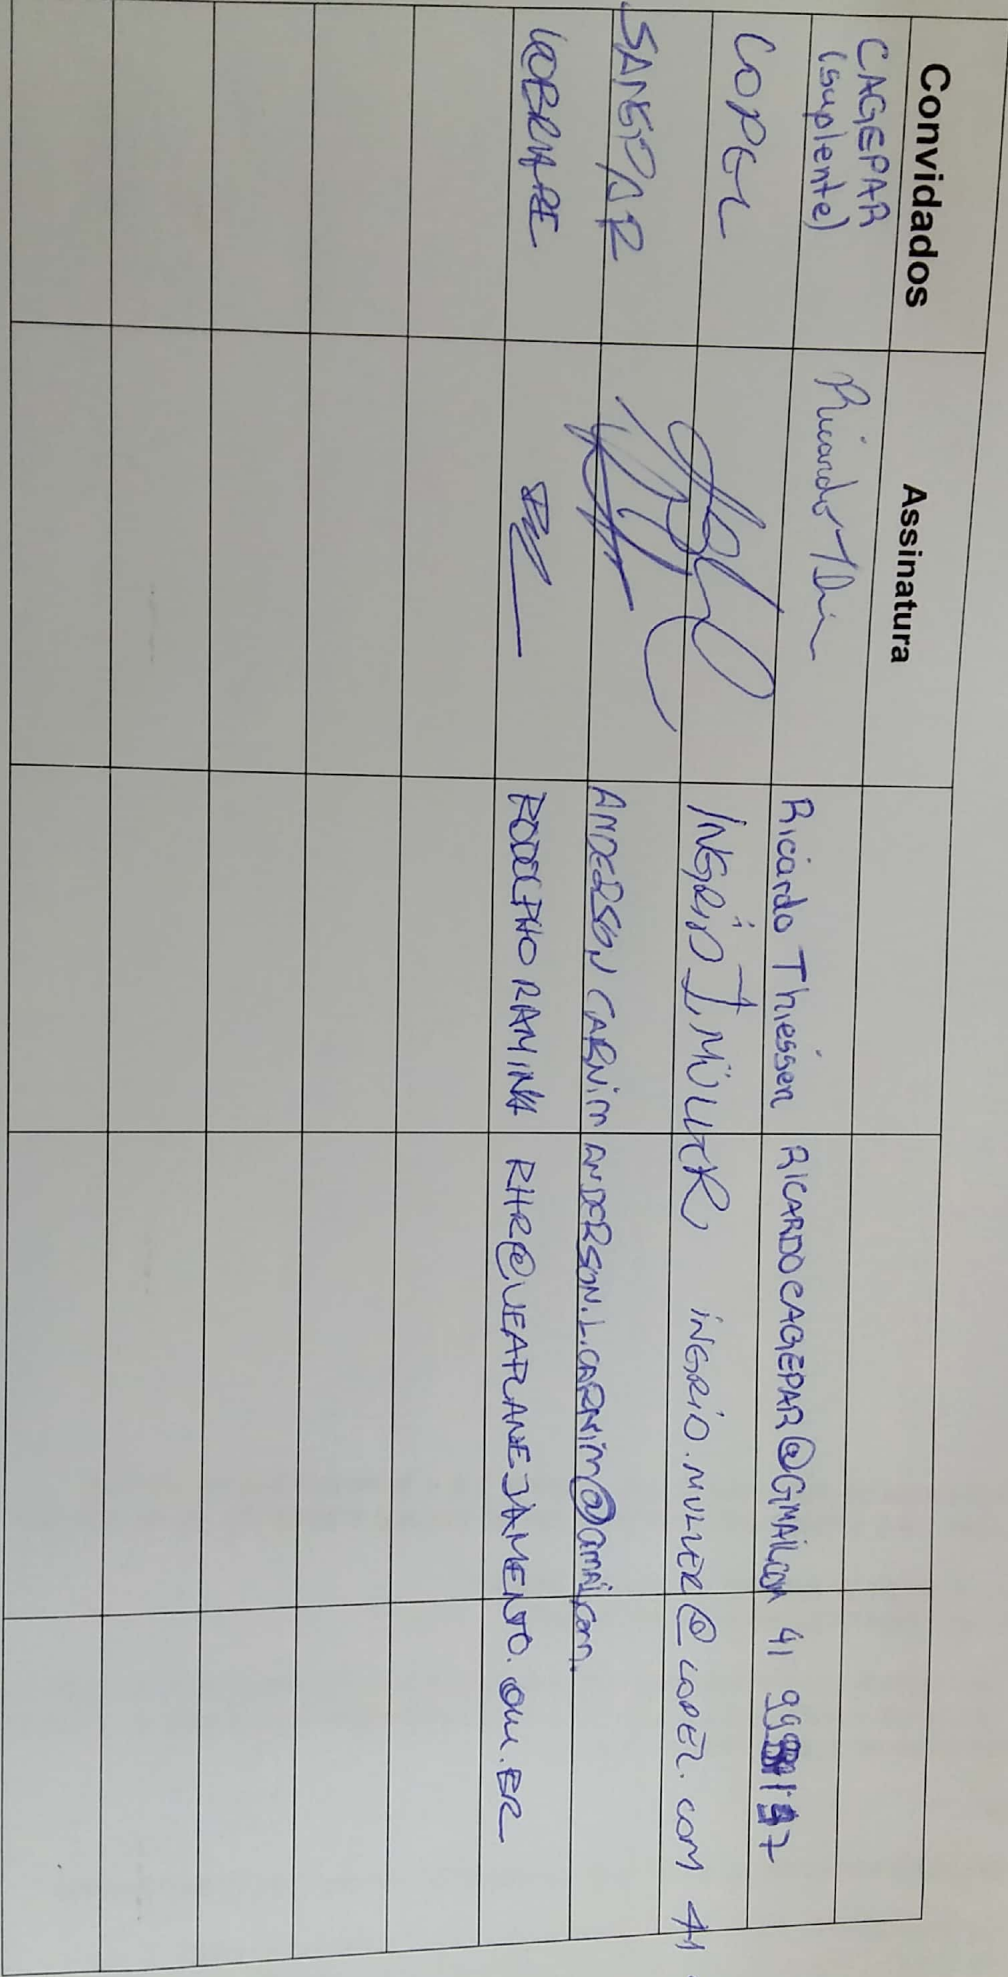 Convidados Assinatura
CAGEPAR
(suplente) Ricardo Thiessen RICARDOCAGEPAR@GMAIL.COM 41
COPEL INGRID I. MÜLLER INGRID.MULLER@COPEL.COM 41
SANEPAR ANDERSON CARNIM ANDERSON.L.CARNIM@GMAIL.COM.
RODOLPHO RAMINA RHR@VEAPLANEJAMENTO.COM.BR